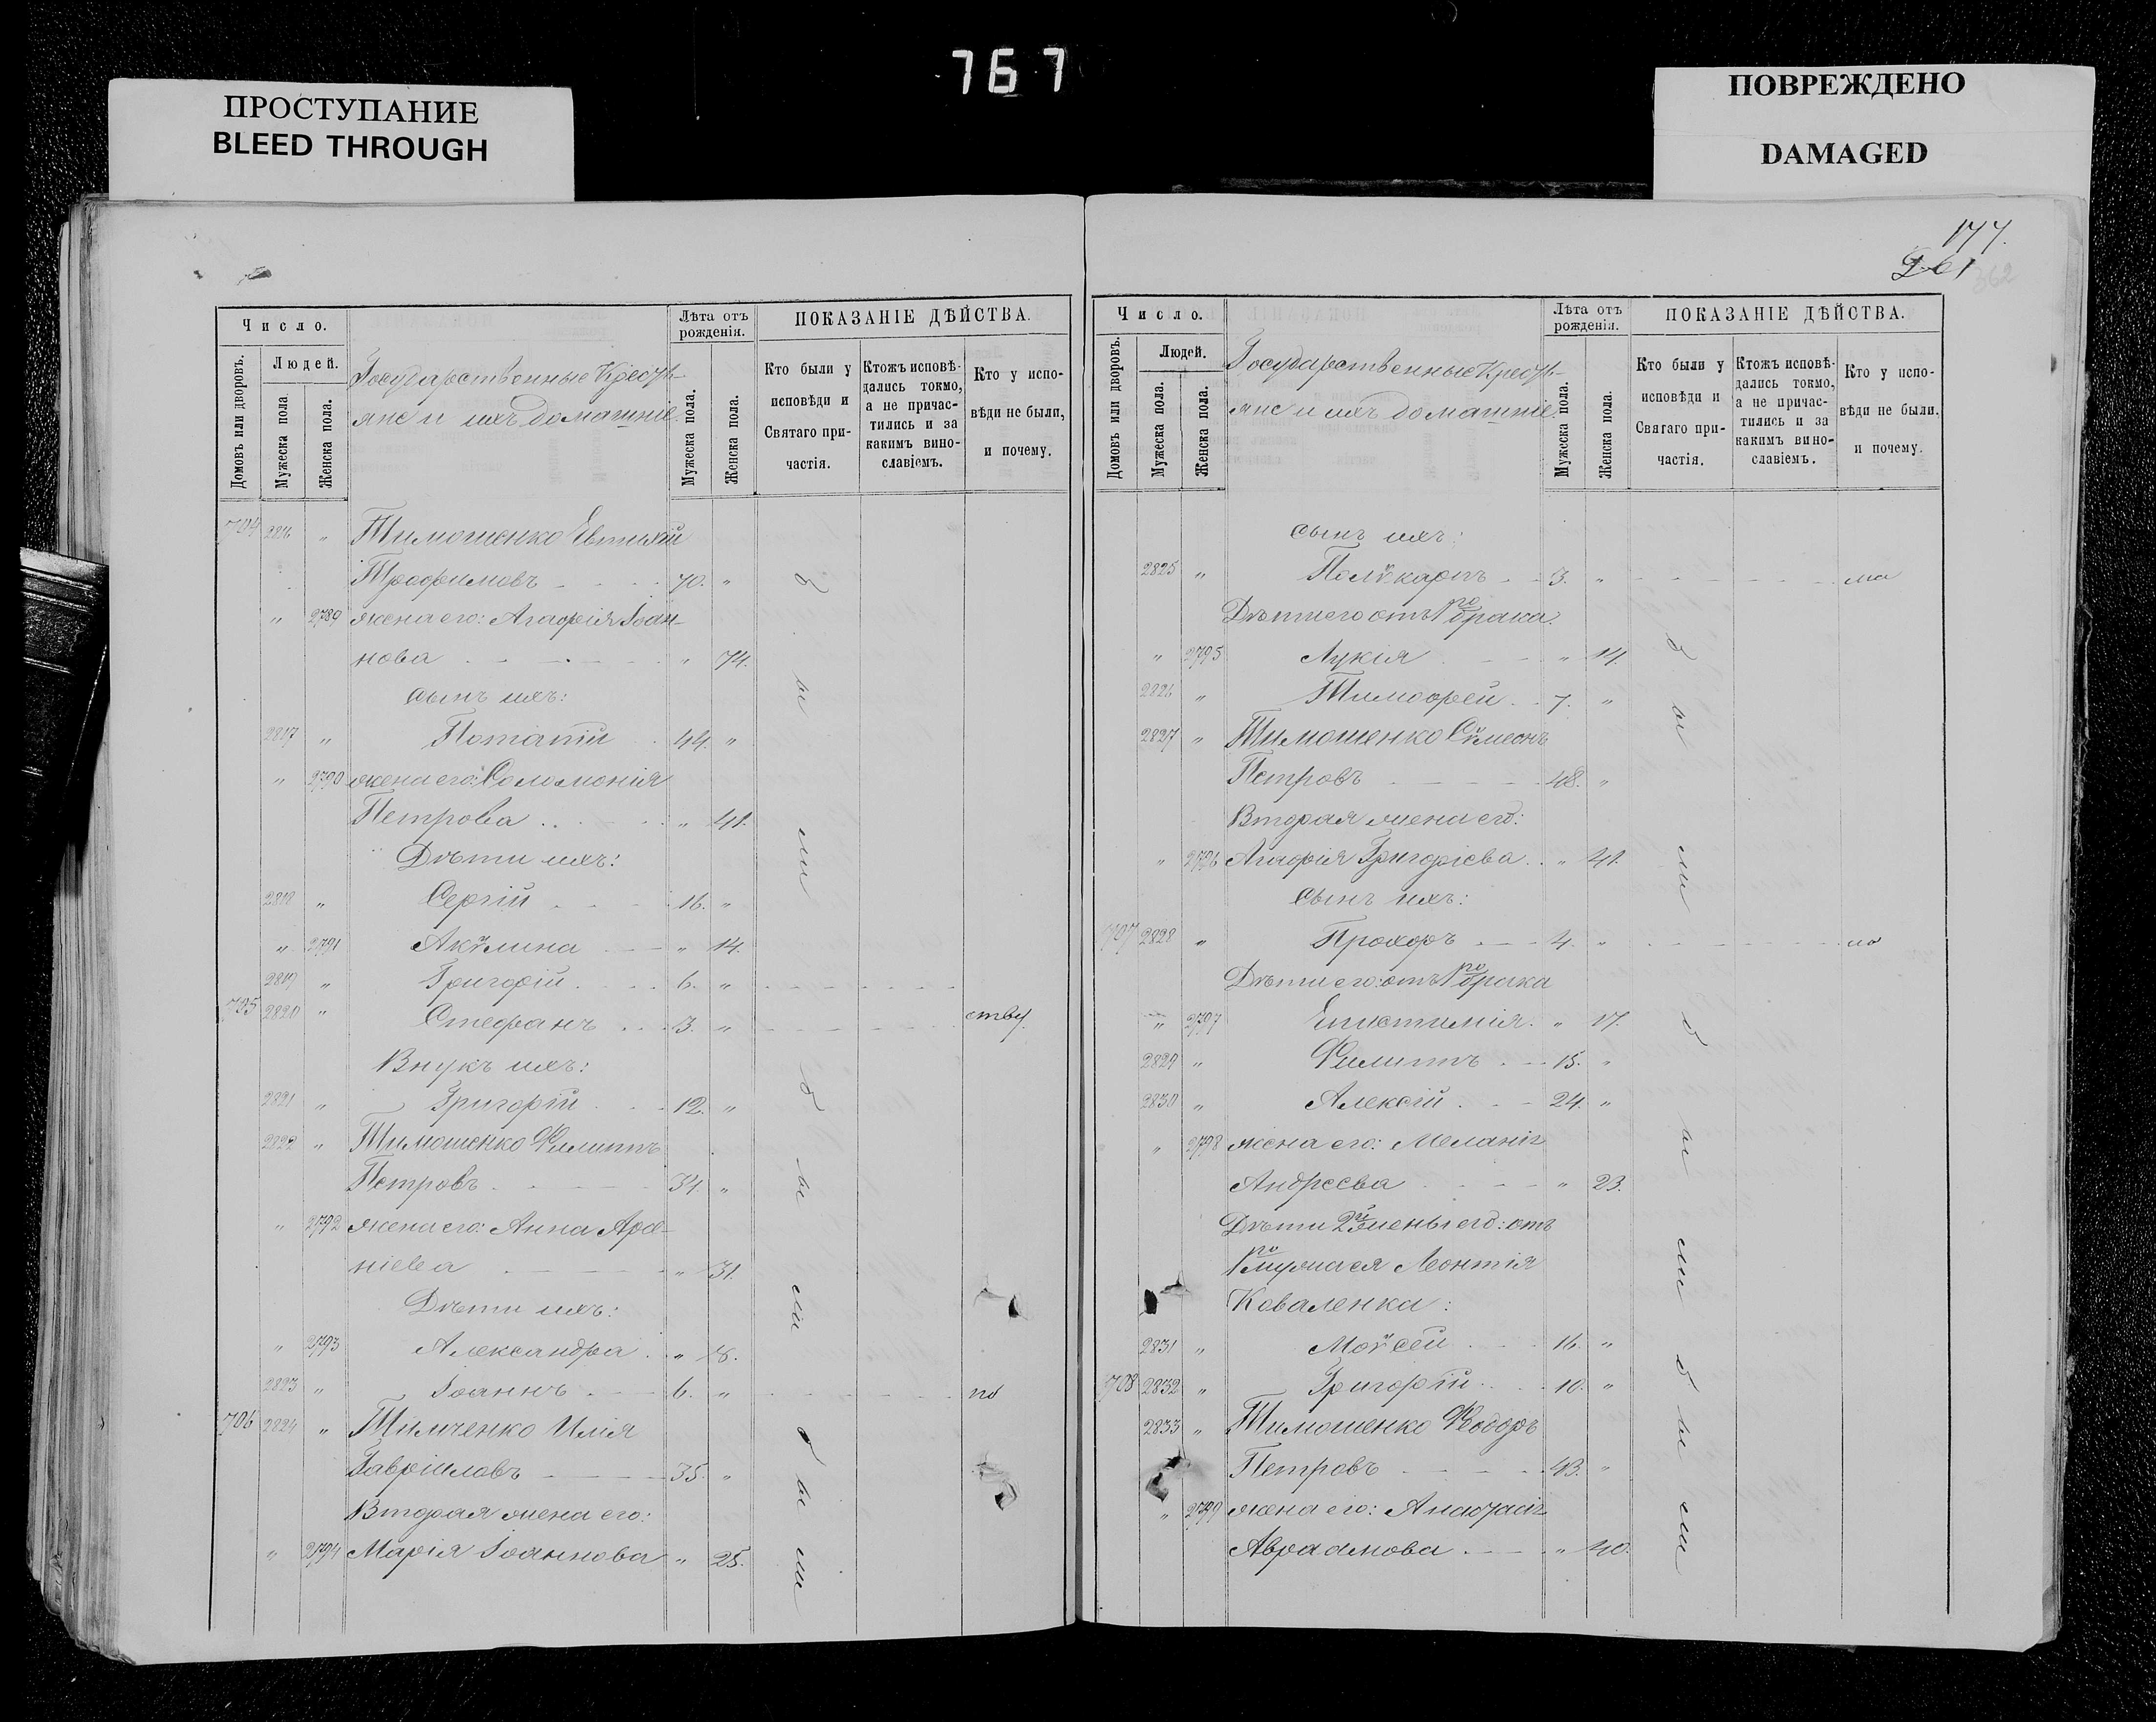 767
ПРОСТУПАНИЕ
BLEED THROUGH
ПОВРЕЖДЕНО
DAMAGED
177.
361
362
Число.
Людей.
Домовъ или дворовъ.
Мужеска пола.
Женска пола.
Государственные Кресть-
яне и ихъ домашніе.
Лѣта отъ рожденія.
Мужеска пола.
Женска пола.
ПОКАЗАНІЕ ДѢЙСТВА.
Кто были у исповѣди и Святаго при-частія.
Ктожъ исповѣ-дались токмо, а не причас-тились и за какимъ вино-славіемъ.
Кто у испо-вѣди не были, и почему.
704 2816 " Тимошенко Евтихій
Трофимовъ 70. "
" 2789 жена его: Агафія Іоан-
нова " 74.
сынъ ихъ:
2817 " Потапій 44. "
" 2790 жена его: Соломонія
Петрова " 41.
Дѣти ихъ:
2818 " Сергій 16. "
" 2791 Акѵлина " 14.
2819 " Григорій 6. "
705 2820 " Стефанъ 3. " ству
Внукъ ихъ:
2821 " Григорій 12. "
2822 " Тимошенко Филиппъ
Петровъ 34. "
" 2792 жена его: Анна
нiева " 31.
Дѣти ихъ:
" 2793 Александра "
2823 " Іоаннъ 6. " по
706 2824 " Тимченко Илія
Гавріиловъ 35. "
Вторая жена его:
" 2794 Марія Іоаннова " 25.
были
были
были
Число.
Людей.
Домовъ или дворовъ.
Мужеска пола.
Женска пола.
Государственные Кресть-
яне и ихъ домашніе.
Лѣта отъ рожденія.
Мужеска пола.
Женска пола.
ПОКАЗАНІЕ ДѢЙСТВА.
Кто были у исповѣди и Святаго при-частія.
Ктожъ исповѣ-дались токмо, а не причас-тились и за какимъ вино-славіемъ.
Кто у испо-вѣди не были. и почему.
сынъ ихъ:
2825 " Полѵкарпъ 3. " ма
Дѣти его отъ 1го брака.
" 2795 Лукія " 14.
2826 " Тимофей 7. "
2827 " Тимошенко Сѵмеонъ
Петровъ 48. "
Вторая жена его:
" 2796 Агафія Григоріева " 41.
Сынъ ихъ:
707 2828 " Прохоръ 4. " ло
Дѣти его: отъ 1го брака
" 2797 Епистимія " 17.
2829 " Филиппъ 15. "
2830 " Алексій 24. "
" 2798 жена его: Меланія
Андреева " 23.
Дѣти 2й жены его: отъ
1го мужа ея Леонтія
Коваленка:
2831 " Моѵсей 16. "
708 2832 " Григорій 10. "
2833 " Тимошенко Феодоръ
Петровъ 43. "
" 2799 жена его: Анастасія
Авраамова " 40.
были
были
были